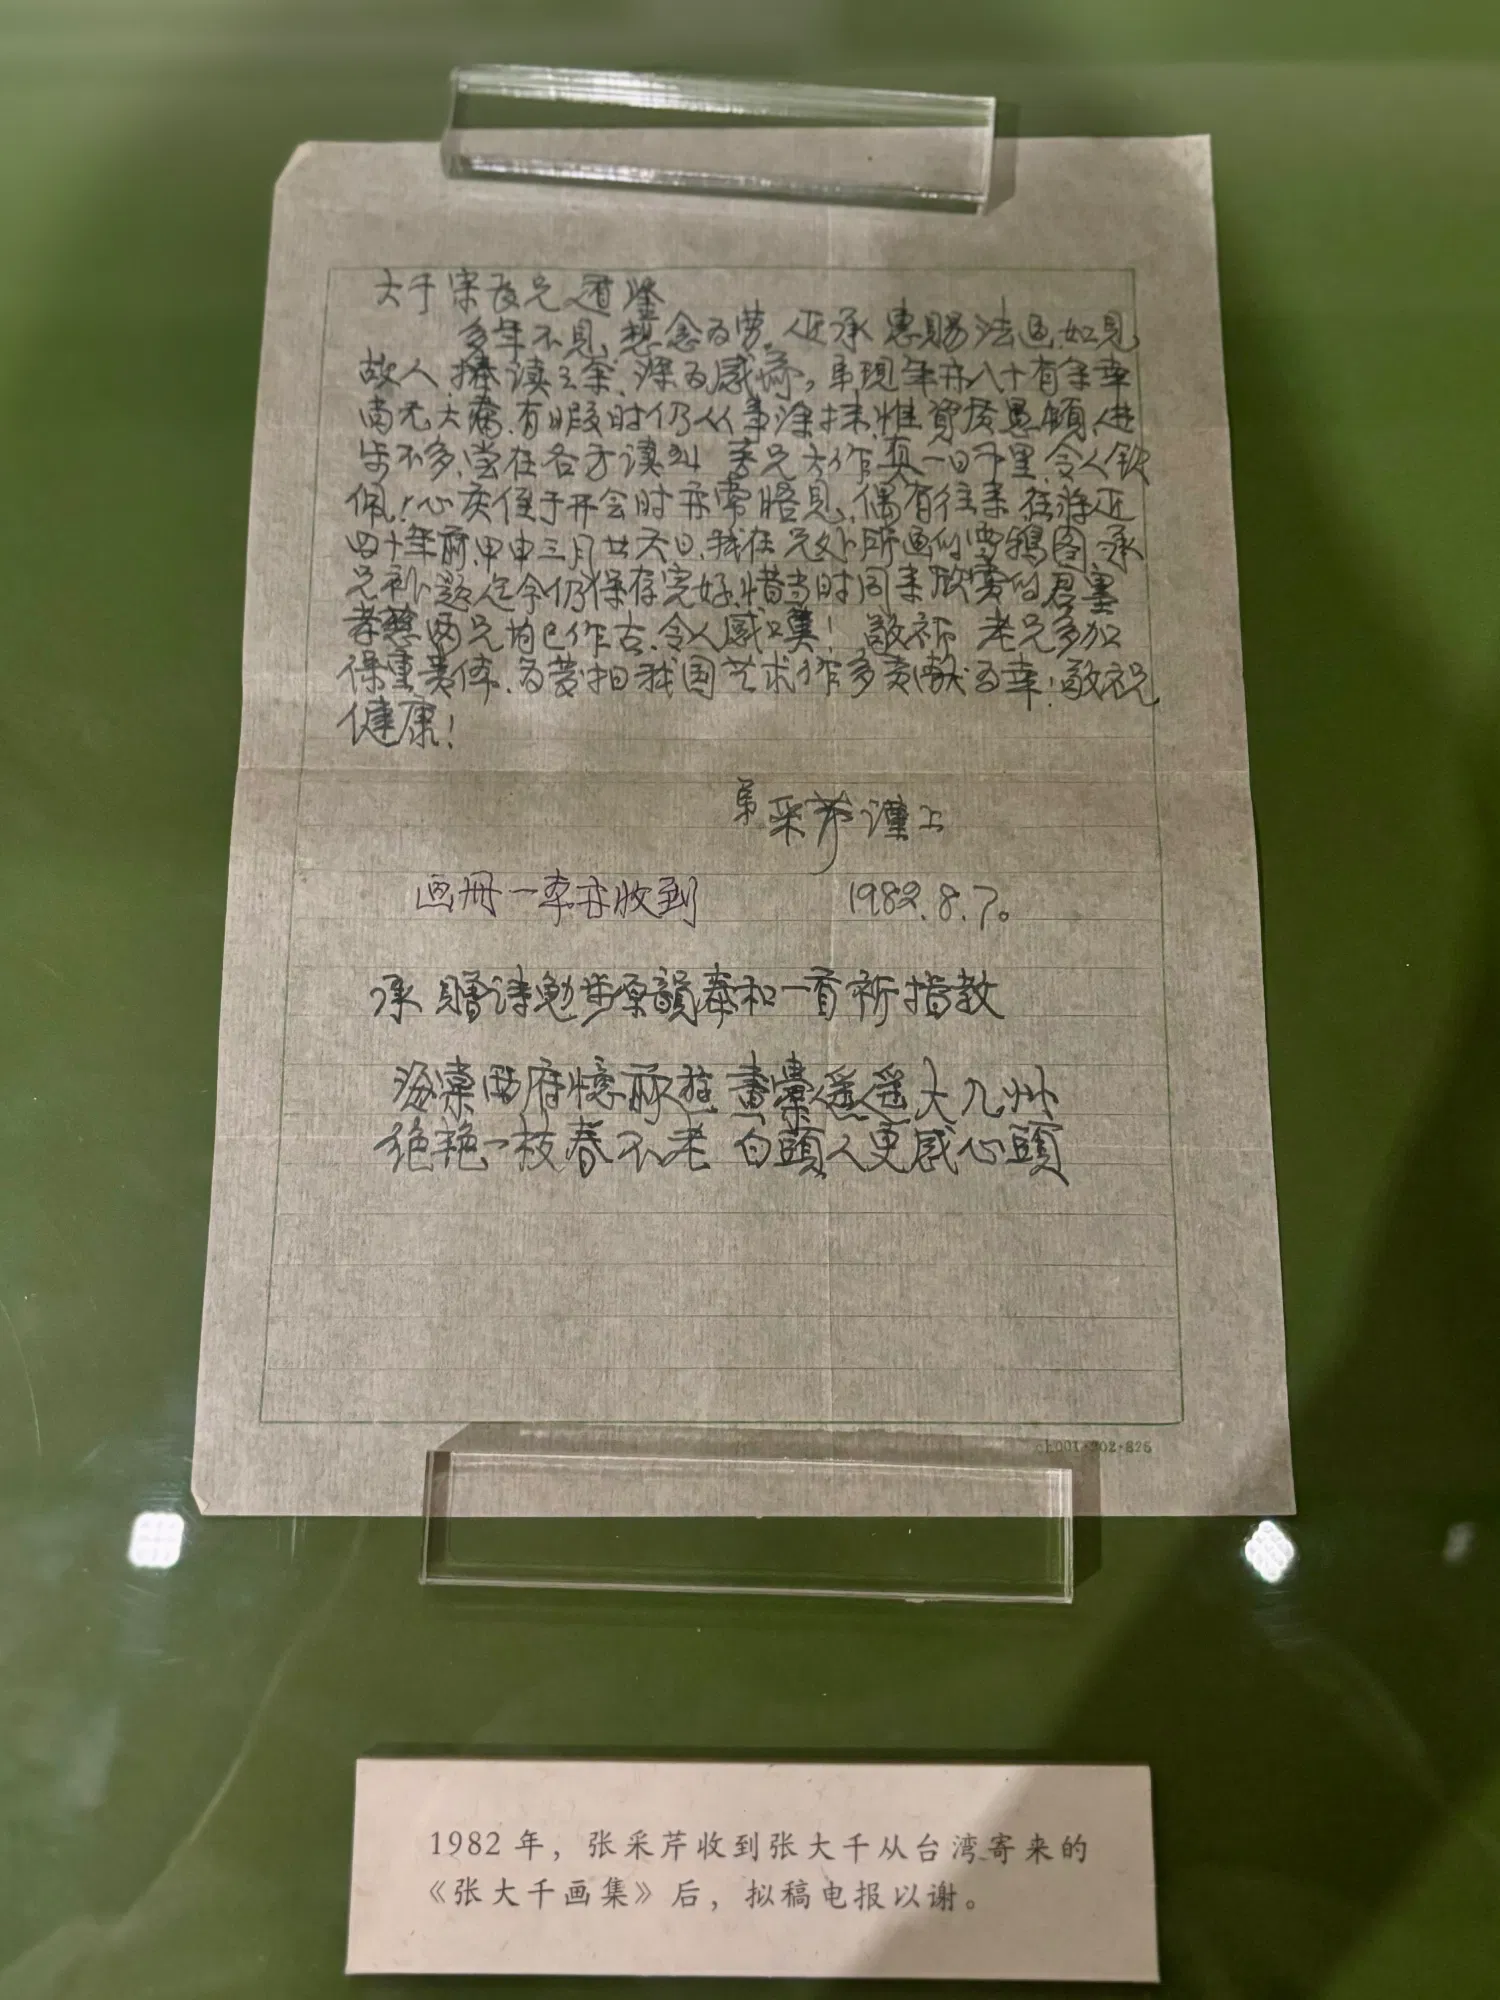 大千宗长兄道鉴
多年不见,想念为劳。近承 惠赐法画,如见
故人,捧读之余,深为感荷。弟现年亦八十有余,幸
尚无大病,有暇时仍从事涂抹,惟资质愚顿,进
步不多,尝在各方读到 老兄大作,真一日千里,令人钦
佩!心 侄于开会时亦常晤见,偶有往来,在将近
四十年前,甲申三月廿六日,我在兄处所画的雪鹅图,承
兄补题,迄今仍保存完好,惜当时同来欣赏的君墨
孝慈两兄均已作古,令人感叹!敬祈 老兄多加
保重贵体,为 我国艺术作多贡献为幸!敬祝
健康!
弟 采芹 谨上
画册一本亦收到 1982.8.7。
承 赠诗勉步原韵奉和一首祈指教
海棠西府憶 遊 畫 遥遥大九州
绝艳一枝春不老 白頭人更感心頭
ch001·202·826
1982 年,张采芹收到张大千从台湾寄来的
《张大千画集》后,拟稿电报以谢。